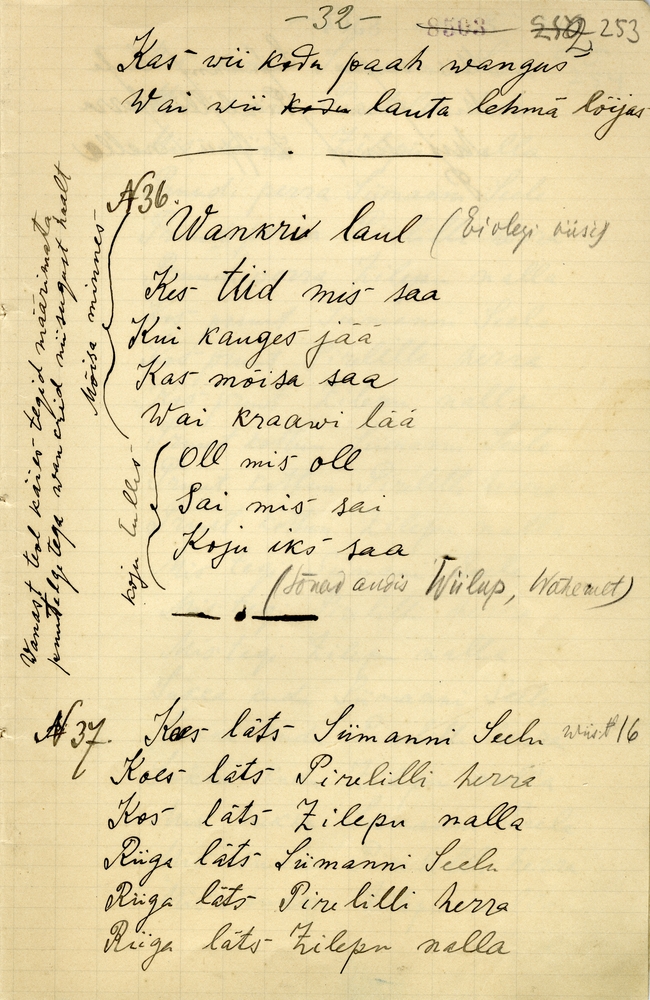 -32-
8503 253
Kas wii kodu paah wangus
Wai wii kodu lauta lehmä löijas
N 36.
Wankri laul (Ei olegi viisi)
Kes tiid mis saa
Kui kauges jää
Kas mõisa saa
Wai kraawi lää
Oll mis oll
Sai mis sai
Koju iks saa
(Sõnad andis Wiilup, Wahemet)
Mõisa minnes
koju tulles
Vanast teol käies tegid määrimata
puutelgetega wankrid niisugust haalt
N 37. Koes läts Siimanni Seelu wiis № 16
Koes läts Pirelilli herra
Kos läts Zilepu nalla
Riiga läts Siimanni Seelu
Riiga läts Pirelilli herra
Riiga läts Zilepu nalla